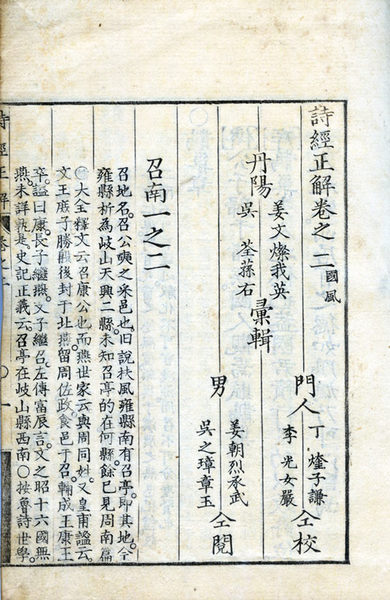 詩經正解卷之二 國風
門人 丁 子謙
李 光女嚴
仝校
丹陽 姜文燦我英
吳 荃蓀右
彙輯
男 姜朝烈承武
吳之璋章玉
仝閱
召南一之二
召地名。召公奭之采邑也。旧說扶風雍縣南有召亭。即其地。今
雍縣析為岐山天興二縣。未知召亭的在何縣。餘已見周南篇
大全釋文云。召康公也。而燕世家云。與周同姓。又皇甫謐云。
文王庶子。勝殷後封于北燕。留周佐政。食邑于召。輔成王康王
卒。謚曰康。長子繼燕。支子繼召。左傳富辰言。文之昭十六國無
燕。未詳孰是。史記正義云。召亭在岐山縣西南○按魯詩世學。
詩經正解 卷之二 ○ 一